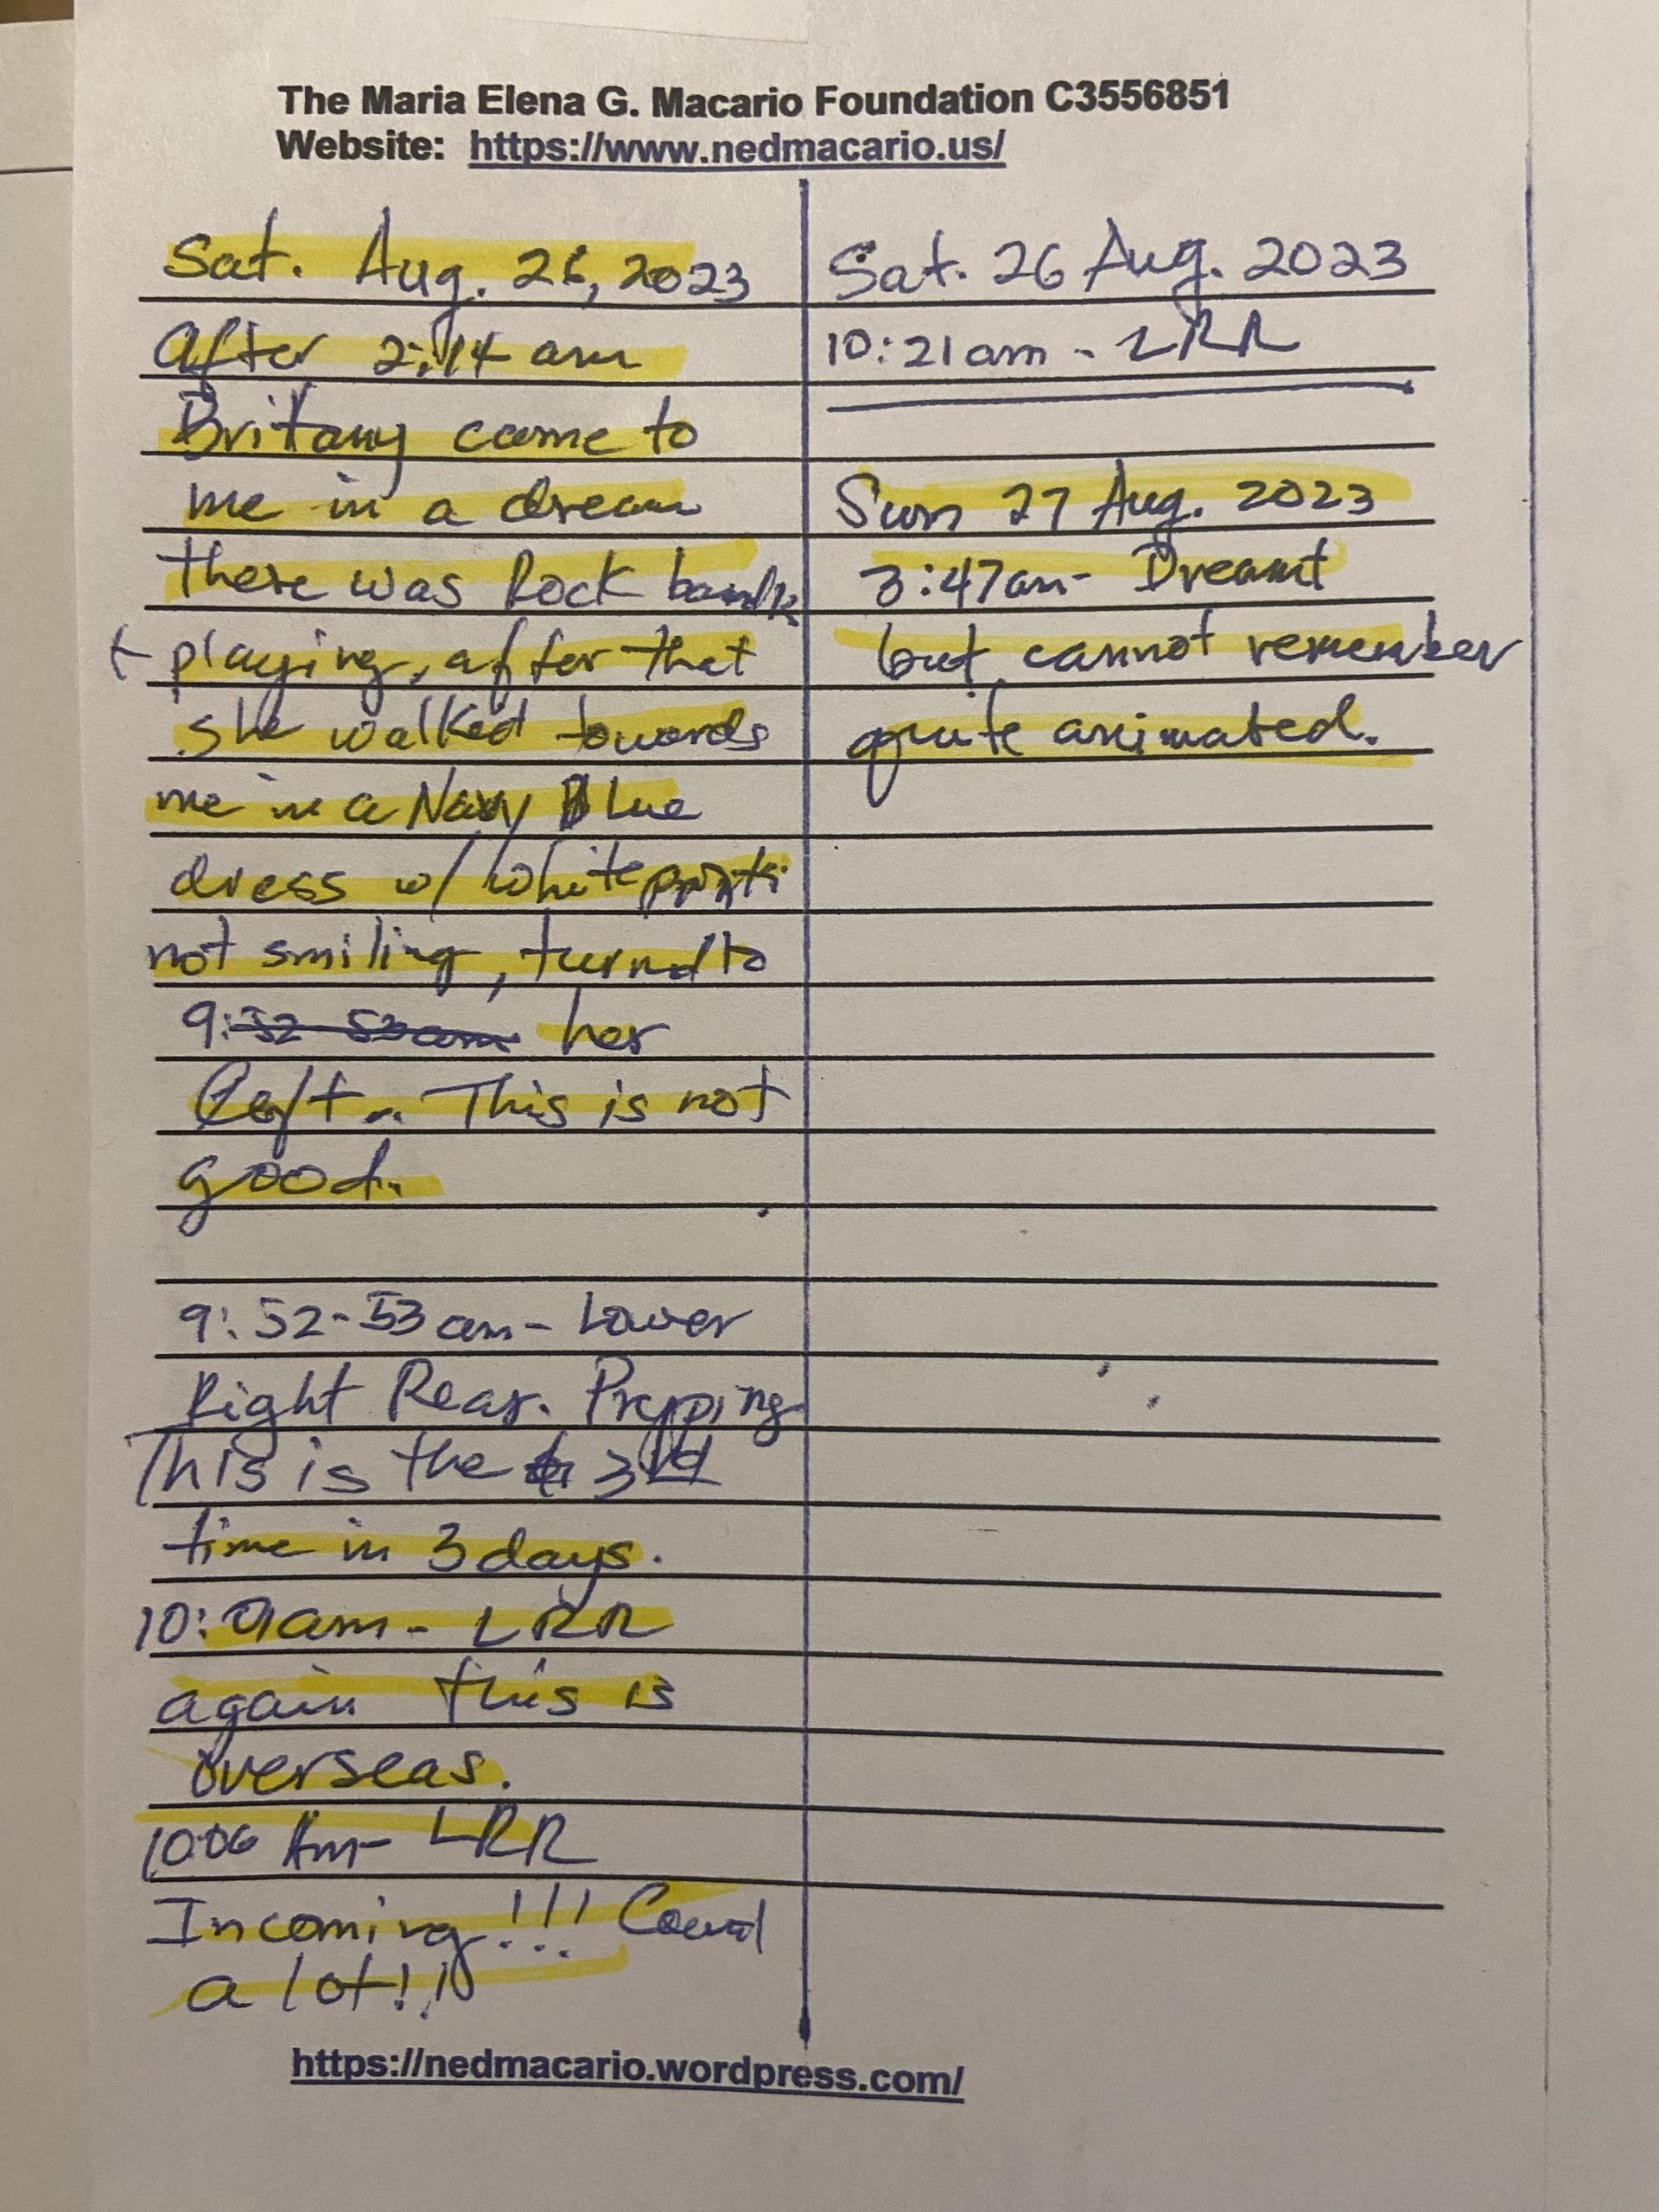 The Maria Elena G. Macario Foundation C3556851
Website: https://www.nedmacario.us/
Sat. Aug. 26, 2023
After 2:14 am
Britany came to
me in a dream
there was Rock
playing, after that
she walked towards
me in a Navy Blue
dress w/ white
not smiling, turnd to
9:32-53am her
left. This is not
good.
9:52-53am - Lower
Right Rear. Prepping
This is the 3rd
time in 3 days.
10:01am - LRR
again this is
overseas.
10:06 Am - LRR
Incoming!!!
a lot!!
Sat. 26 Aug. 2023
10:21am - LRR
Sun 27 Aug. 2023
3:47am - Dreamt
but cannot remember
quite animated.
https://nedmacario.wordpress.com/